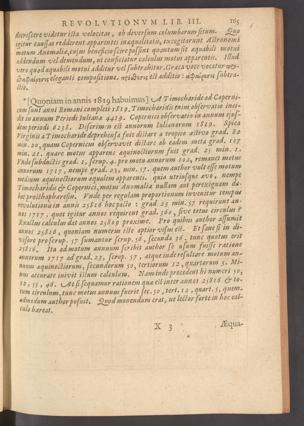 REVOLVTIONVM LIB. III. 165
decrescere videtur ista velocitas, ob deversum columbarum situm. Quo
igitur causæ redderent apparentis inæqualitatis, excogitarunt Astronomi
motum Anomaliæ, cujus beneficio scire possint quantum sit æquabili motui
addendum vel demendum, ut conficiatur calculus motus apparentis. Illud
vero quod æquabili motui additur vel subtrahitur, Græca voce vocatur
eleganti compositione. est additio: subtra-
ctio.
*[Quoniam in annis 1819 habuimus] A Timocharide ad Coperni-
cum sunt anni Romani completi 1819, Timocharidis enim observatio inci-
dit in annum Periodi Julianæ 4419. Copernici observatio in annum ejus-
dem periodi 6238. Differentia est annorum Iulianorum 1819. Spica
Virginis à Timocharide deprehensa fuit distare à tropico æstivo grad. 82
min. 20, quam Copernicus observavit distare ab eadem meta grad. 107
min. 21. quare motus apparens æquinoctiorum fuit grad. 25 min. 1.
Vnde subductis grad. 1, scrup. 4. pro metu annorum 102, remanet motus
annorum 1717, nempe grad. 23, min. 57. quem author vult esse motum
medium æquinoctiorum æqualem apparenti. quia utriusque ævo, nempe
Timocharidis & Copernici, motus Anomaliæ nullam aut perexiguam da-
bat prosthaphæresin. Vnde per regulam proportionum invenitur tempus
revolutionis in annis 25816 hoc pacto: grad 23 min. 57 requirunt an-
nos 1717. quot igitur annos requirent grad. 360, sive totus circulus?
Exactus calculus dat annos 25809 proximè. Pro quibus author assumsit
annos 25816, quoniam numerus iste aptior visus est. Et sane si in di-
visore pro scrup. 57 sumantur scrup. 56, secunda 36, tunc quotus erit
25816. Ita ad motum annuum scribit author se usum fuisse ratione
annorum 1717 ad grad. 23, scrup. 57, atque inde resultare motum an-
nuum æquinoctiorum, secundorum 50, tertiorum 12, quartorum 5. Mi-
nus accurate inivit illum calculum. Nam inde procedent hi numeri 50,
12, 55, 46. At si sequamur rationem quæ est inter annos 25816 & to-
tum circulum, tunc motus annuus fuerit sec. 50, tert. 12, quart. 5, quem-
admodum author posuit. Quod monendum erat, ne lector forte in hoc cal-
culo hæreat.
X 3 Æqua-